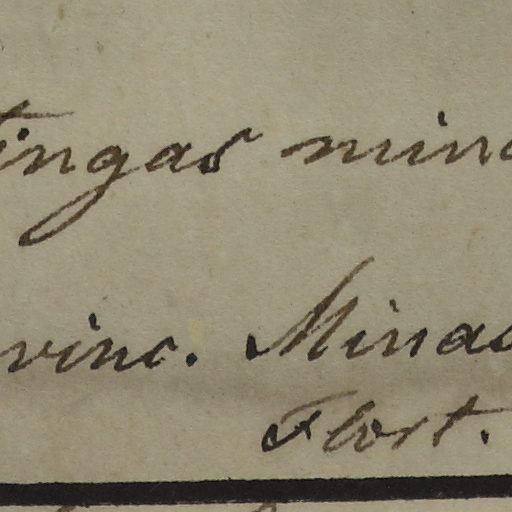 tingas mina
vinc. Minas
Flort.